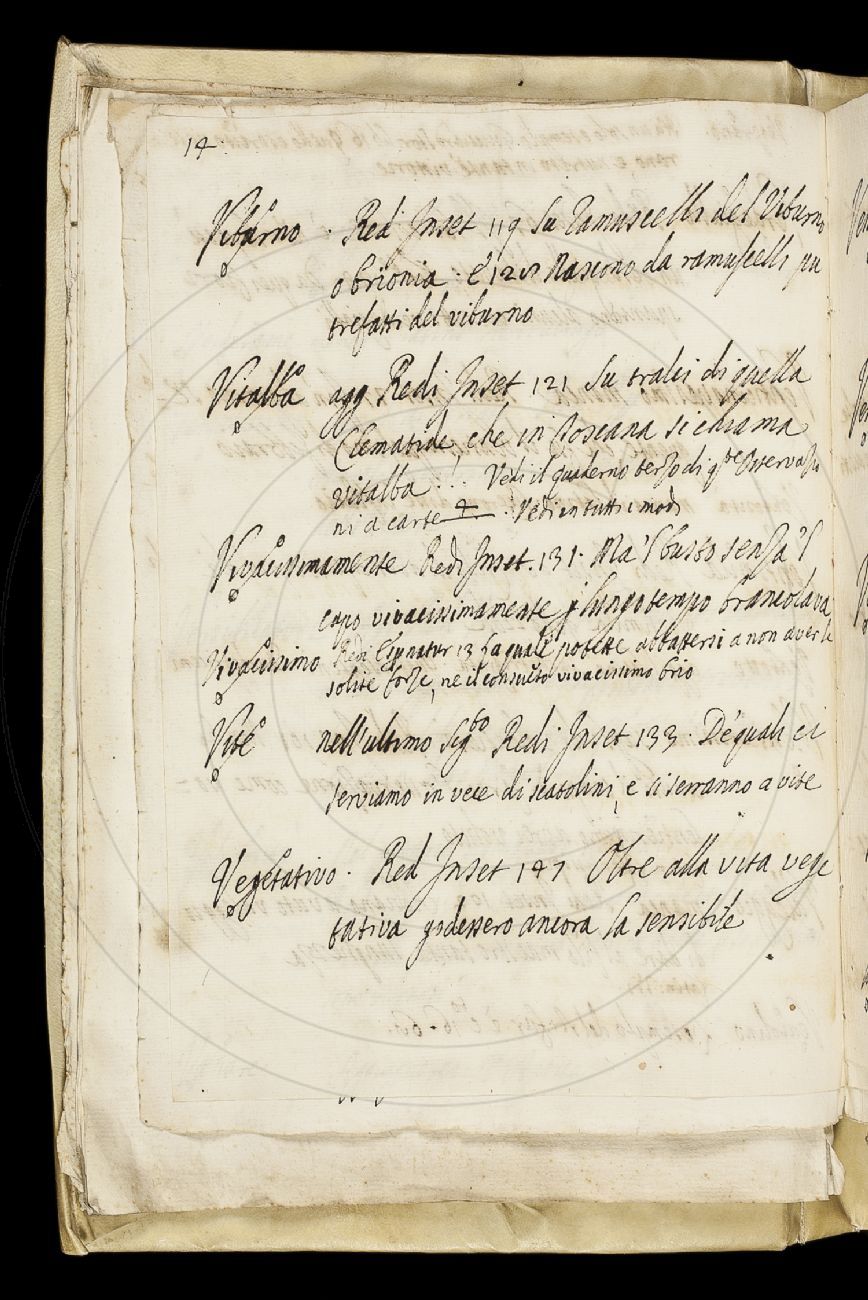 14.
Viburno . Red Inset 119 Su ramuscelli del Viburno
o brionia . E 125 Nascono da ramuscelli pu
trefatti del viburno
Vitalba agg Redi Inset 121 Su tralci di quella
Clematide, che in Toscana si chiama
vitalba !. Vedi il quaderno terzo di q.te Osservazio
ni a carte 4 . Vedi in tutti i modi
Vivacissimamente Redi Inset. 131. Ma'l busto senza'l
capo vivacissimamente p lungo tempo brancolava
Vivacissimo Redi Esp natur 13 La quale potette abbattersi a non aver le
solite forze, ne il consueto vivacissimo brio
Vite nell'ultimo Sig.to Redi Inset 133. De quali ci
serviamo in vece di scatolini, e si serranno a vite
Vegetativo . Red Inset 147 Oltre alla vita vege
tativa godessero ancora la sensibile